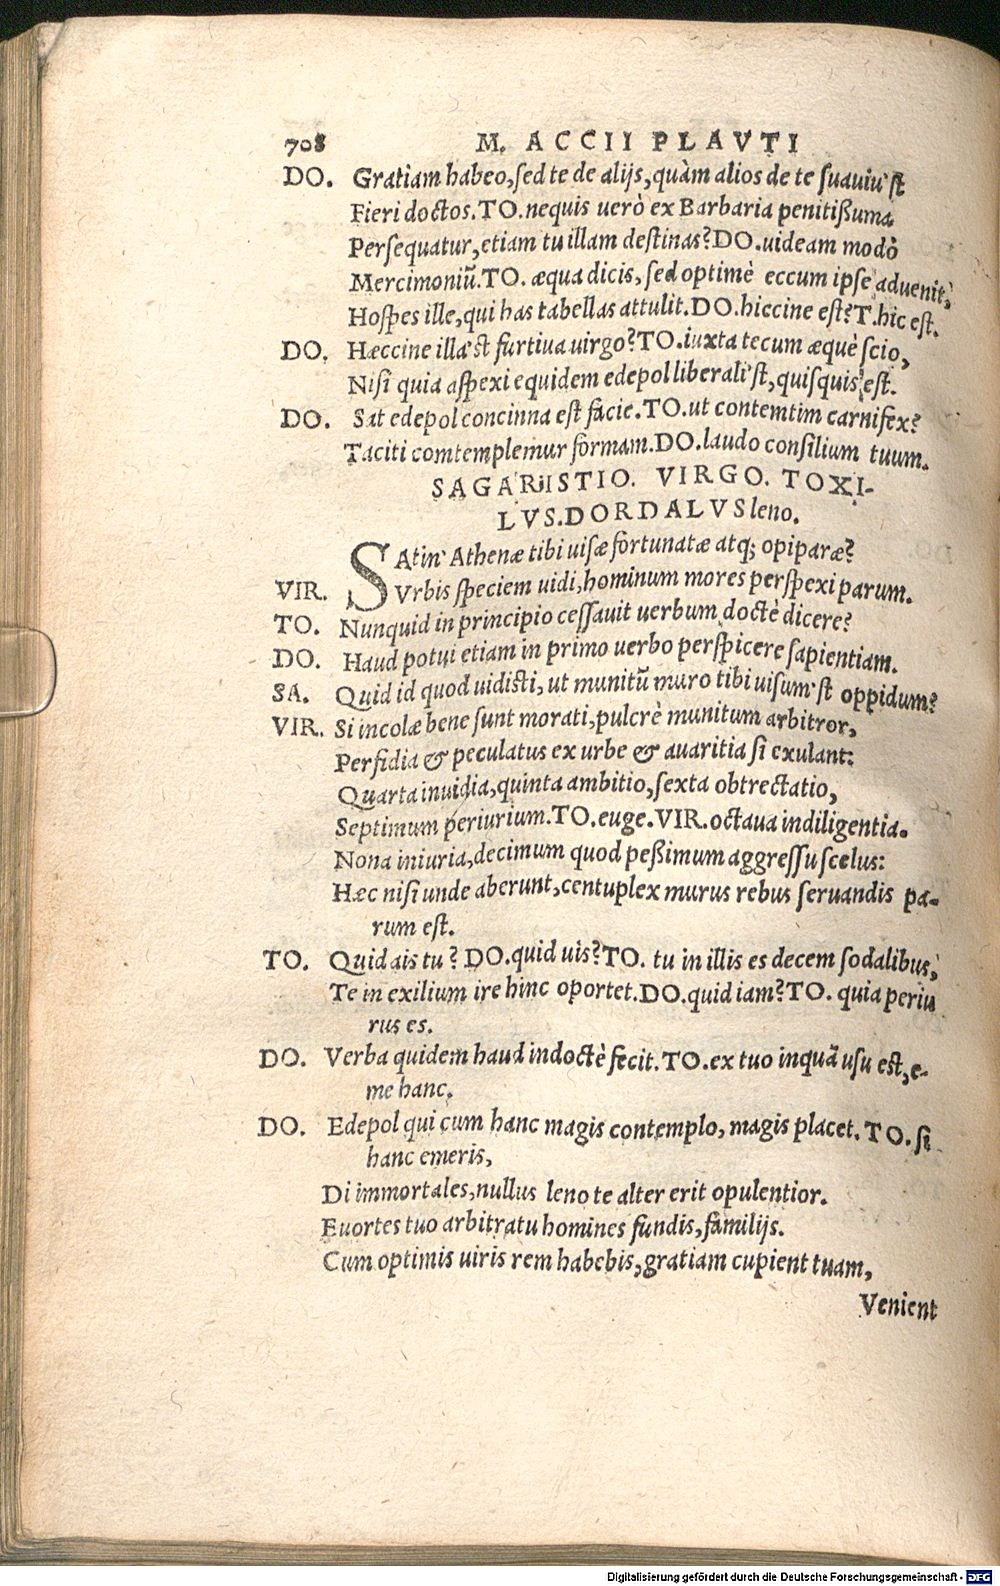 708 M. ACCII PLAVTI
DO. Gratiam habeo, sed te de alijs, quàm alios de te suauiu'st
Fieri doctos. TO. nequis uerò ex Barbaria penitißuma
Persequatur, etiam tu illam destinas? DO. uideam modò
Mercimoniũ. TO. æqua dicis, sed optimè eccum ipse aduenit,
Hospes ille, qui has tabellas attulit. DO. hiccine est? T. hic est.
DO. Hæccine illa'st furtiua uirgo? TO. iuxta tecum æquè scio,
Nisi quia aspexi equidem edepol liberali'st, quisquis est.
DO. Sat edepol concinna est facie. TO. ut contemtim carnifex?
Taciti comtemplemur formam. DO. laudo consilium tuum.
SAGARISTIO. VIRGO. TOXI-
LVS. DORDALVS leno.
SAtin' Athenæ tibi uisæ fortunatæ atq; opiparæ?
VIR. Vrbis speciem uidi, hominum mores perspexi parum.
TO. Nunquid in principio cessauit uerbum doctè dicere?
DO. Haud potui etiam in primo uerbo perspicere sapientiam.
SA. Quid id quod uidisti, ut munitũ muro tibi uisum'st oppidum?
VIR. Si incolæ bene sunt morati, pulcrè munitum arbitror,
Perfidia & peculatus ex urbe & auaritia si exulant:
Quarta inuidia, quinta ambitio, sexta obtrectatio,
Septimum periurium. TO. euge. VIR. octaua indiligentia.
Nona iniuria, decimum quod peßimum aggressu scelus:
Hæc nisi unde aberunt, centuplex murus rebus seruandis pa-
rum est.
TO. Quid ais tu? DO. quid uis? TO. tu in illis es decem sodalibus,
Te in exilium ire hinc oportet. DO. quid iam? TO. quia periu
rus es.
DO. Verba quidem haud indoctè fecit. TO. ex tuo inquã usu est, e-
me hanc.
DO. Edepol qui cum hanc magis contemplo, magis placet. TO. si
hanc emeris,
Di immortales, nullus leno te alter erit opulentior.
Euortes tuo arbitratu homines fundis, familijs.
Cum optimis uiris rem habebis, gratiam cupient tuam,
Venient
Digitalisierung gefördert durch die Deutsche Forschungsgemeinschaft - DFG